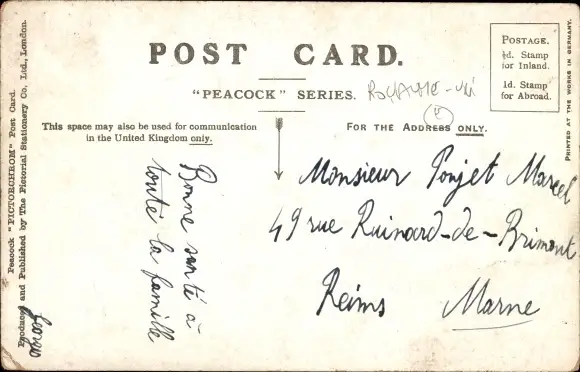 POST CARD.
"PEACOCK" SERIES.
ROYAUME-UNI
This space may also be used for communication
in the United Kingdom only.
FOR THE ADDRESS ONLY.
POSTAGE.
½d. Stamp
for Inland.
1d. Stamp
for Abroad.
PRINTED AT THE WORKS IN GERMANY.
Peacock "PICTORCHROM" Post Card.
Produced and Published by The Pictorial Stationery Co. Ltd., London.
Bonne santé à
toute la famille
Georges
Monsieur Poujet Marcel
49 rue Ruinard-de-Brimont
Reims Marne